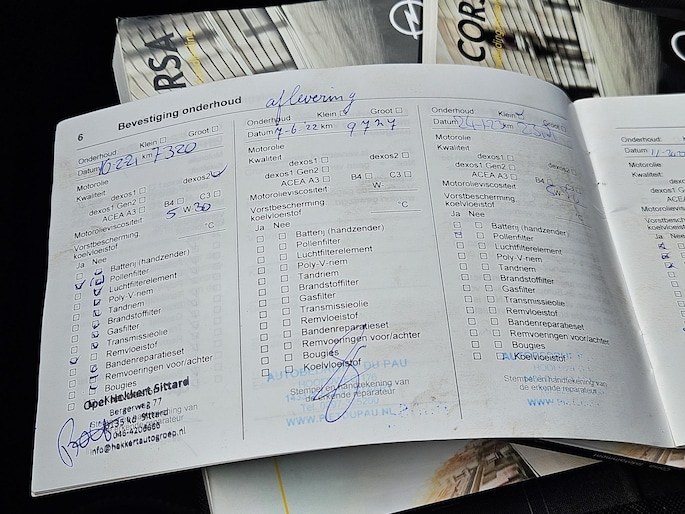 CORSA
CORS
6
Bevestiging onderhoud
aflevering
Onderhoud: Klein Groot
Datum 10-221 km 7320
Motorolie
Kwaliteit
dexos2
dexos1
dexos1 Gen2
ACEA A3 B4 C3
Motorolieviscositeit 5 W 30
Vorstbescherming
koelvloeistof °C
Ja Nee
Batterij (handzender)
Pollenfilter
Luchtfilterelement
Poly-V-riem
Tandriem
Brandstoffilter
Gasfilter
Transmissieolie
Remvloeistof
Bandenreparatieset
Remvoeringen voor/achter
Bougies
Opel Hekkert Sittard
Bergerweg 77
Sittard
info@hekkertautogroep.nl
Onderhoud: Klein Groot
Datum 7-6-'22 km 9727
Motorolie
Kwaliteit
dexos1 dexos2
dexos1 Gen2
ACEA A3 B4 C3
Motorolieviscositeit W-
Vorstbescherming
koelvloeistof °C
Ja Nee
Batterij (handzender)
Pollenfilter
Luchtfilterelement
Poly-V-riem
Tandriem
Brandstoffilter
Gasfilter
Transmissieolie
Remvloeistof
Bandenreparatieset
Remvoeringen voor/achter
Bougies
Koelvloeistof
DU PAU
Stempel en handtekening van
de erkende reparateur
Onderhoud: Klein
Datum km
Motorolie
Kwaliteit
dexos1
dexos1 Gen2
ACEA A3
Motorolieviscositeit
Vorstbescherming
koelvloeistof
Ja Nee
Batterij (handzender)
Pollenfilter
Luchtfilterelement
Poly-V-riem
Tandriem
Brandstoffilter
Gasfilter
Transmissieolie
Remvloeistof
Bandenreparatieset
Remvoeringen voor/achter
Bougies
Koelvloeistof
Stempel en handtekening van
de erkende reparateur
Onderhoud:
Datum
Motorolie
Kwaliteit:
dexos1
Ja Nee